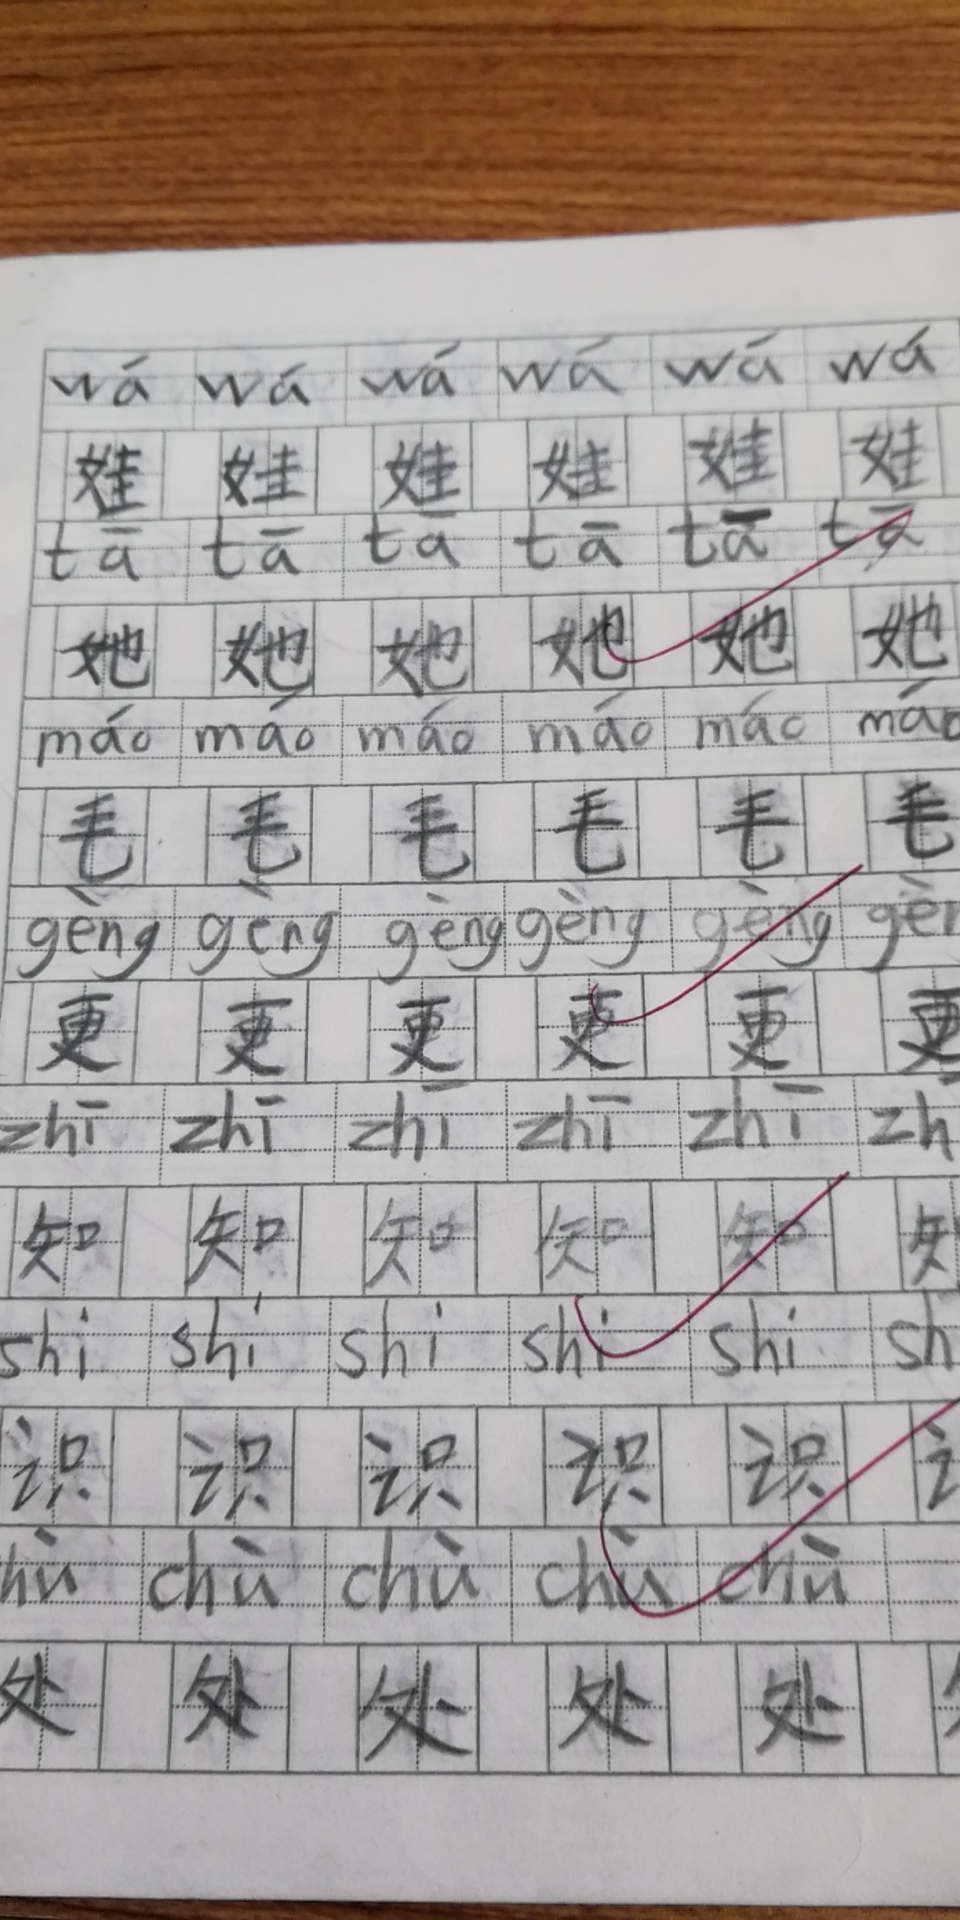 wá wá wá wá wá wá
娃 娃 娃 娃 娃 娃
tā tā tā tā tā tā
她 她 她 她 她 她
máo máo máo máo máo máo
毛 毛 毛 毛 毛 毛
gèng gèng gèng gèng gèng gèn
更 更 更 更 更 更
zhī zhī zhī zhī zhī zh
知 知 知 知 知 知
shi shi shi shi shi sh
识 识 识 识 识
hù chù chù chù chù
处 处 处 处 处